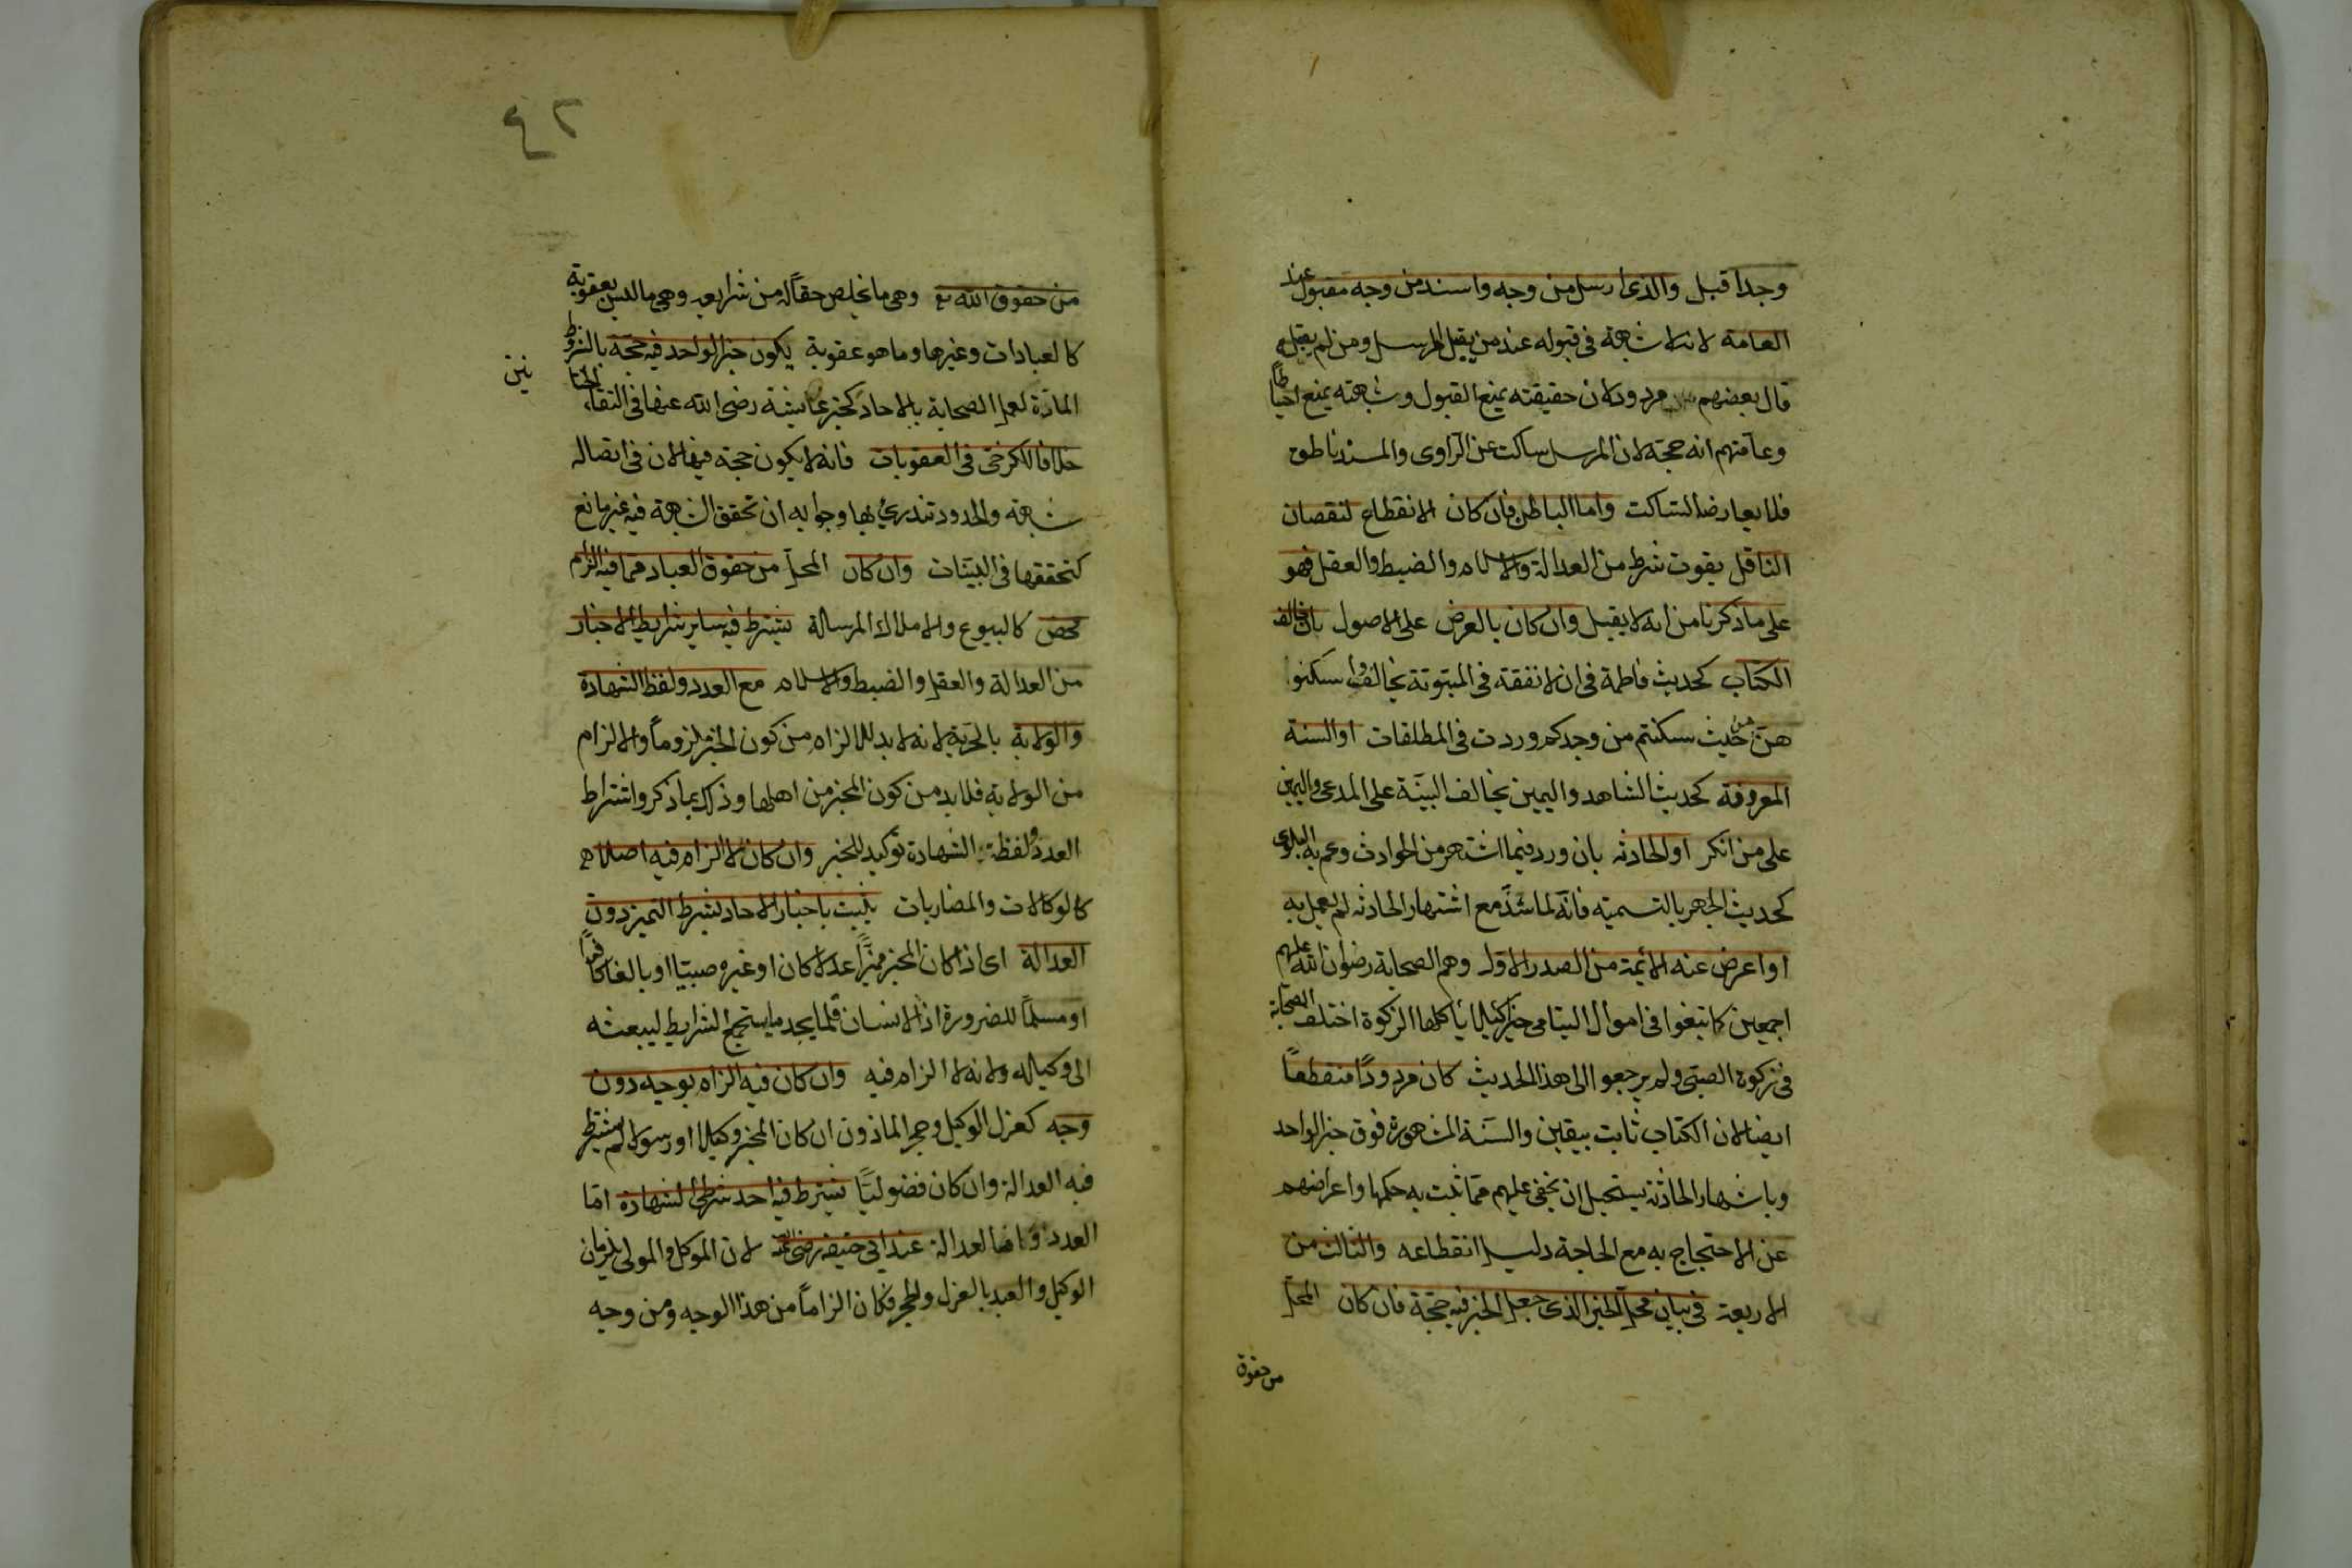 وجدا قبل والذى ارسل من وجه واسند من وجه مقبول عند
العامة لانه لا شبهة فى قبوله عند من يقبل المرسل ومن لم يقبله
قال بعضهم مردود لان حقيقته يمنع القبول وشبهته يمنع احتياطاً
وعامتهم انه حجة لان المرسل ساكت عن الراوى والمسند ناطق
فلا يعارضه الساكت واما الباطن فان كان الانقطاع لنقصان
الناقل بفوت شرط من العدالة والاسلام والضبط والعقل فهو
على ما ذكرنا من انه لا يقبل وان كان بالعرض على الاصول بان خالف
الكتاب كحديث فاطمة فى ان لا نفقة فى المبتوتة يخالف اسكنوا
هن من حيث سكنتم من وجدكم وردت فى المطلقات او السنة
المعروفة كحديث الشاهد واليمين يخالف البينة على المدعى واليمين
على من انكر او الحادثه بان ورد فيما اشتهر من الحوادث وعم به البلوى
كحديث الجهر بالتسميه فانه لما شذ مع اشتهار الحادثه لم يعمل به
او اعرض عنه الائمة من الصدر الاول وهم الصحابة رضوان الله عليهم
اجمعين كابتغوا فى اموال اليتامى خيراً كيلا يأكلها الزكوة اختلف الصحابة
فى زكوة الصبى ولم يرجعوا الى هذا الحديث كان مردوداً منقطعاً
ايضا لان الكتاب ثابت بيقين والسنة المشهورة فوق خبر الواحد
وباشتهار الحادثة يستحيل ان يخفى عليهم مما ثبت به حكمها واعراضهم
عن الاحتجاج به مع الحاجة دليل انقطاعه والثالث من
الاربعة فى بيان محل الخبر الذى جعل الخبر فيه حجة فان كان المحل
من حقوق
٤٢
من حقوق الله تع وهى ما يخلص حقاً له من شرايعه وهى ما ليس بعقوبة
كالعبادات وغيرها وما هو عقوبة يكون خبر الواحد فيه حجة بالشروط
المارة لعمل الصحابة بالاحاد كخبر عايشة رضى الله عنها فى التقاء الختا
نين
خلافا للكرخى فى العقوبات فانه لا يكون حجة فيها لان فى اتصاله
شبهة والحدود تندرئ بها وجوابه ان تحقق الشبهة فيه غير مانع
كتحققها فى البينات وان كان المحل من حقوق العباد مما فيه الزام
محض كالبيوع والاملاك المرسالة يشترط فيه ساير شرايط الاخبار
من العدالة والعقل والضبط والاسلام مع العدد ولفظ الشهادة
والولاية بالحرية لانه لا بد للالزام من كون الخبر ملزوماً والالزام
من الولاية فلا بد من كون المخبر من اهلها وذلك بما ذكر واشتراط
العدد ولفظة الشهادة توكيد للخبر وان كان لا الزام فيه اصلا
كالوكالات والمضاربات يثبت باخبار الاحاد بشرط التميز دون
العدالة اى اذا كان المخبر مميزاً عدلا كان او غيره صبيا او بالغا كافراً
او مسلماً للضرورة اذ الانسان قلما يجد ما يستجمع الشرايط ليبعثه
الى وكياله ولانه لا الزام فيه وان كان فيه الزام بوجه دون
وجه كعزل الوكيل وحجر الماذون ان كان المخبر وكيلا او رسولا لم يشترط
فيه العدالة وان كان فضوليًا يشترط فيه احد شطرى الشهادة اما
العدد واما العدالة عند ابى حنيفه رضى الله عنه لان الموكل والمولى يلزمان
الوكيل والعبد بالعزل والحجر فكان الزاماً من هذا الوجه ومن وجه